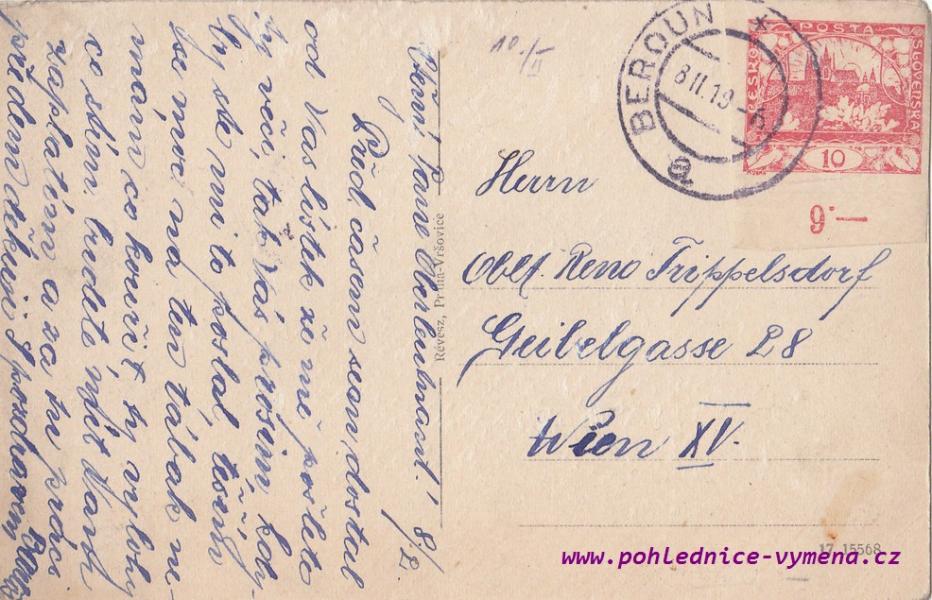 Ctěný Pane Oberleutnant! 8/2.
Před časem jsem dostal
od Vas lístek že mi pošlete
ty věci, tak Vás prosim kdy-
by ste mi to poslal, těším
se moc na ten tábak ne-
mám co kouřit, ty vylohy
co stím budete mít Vam
zaplatím a za tu práci
předem děkuji S pozdravem
10./II
BEROUN
8 II. 19
a
POSTA
ČESKO
SLOVENSKA
10
9.—
Herrn
Oblt. Reno Trippelsdorf
Geibelgasse 28
Wien XV.
Révész, Praha-Vršovice
17 15568
www.pohlednice-vymena.cz